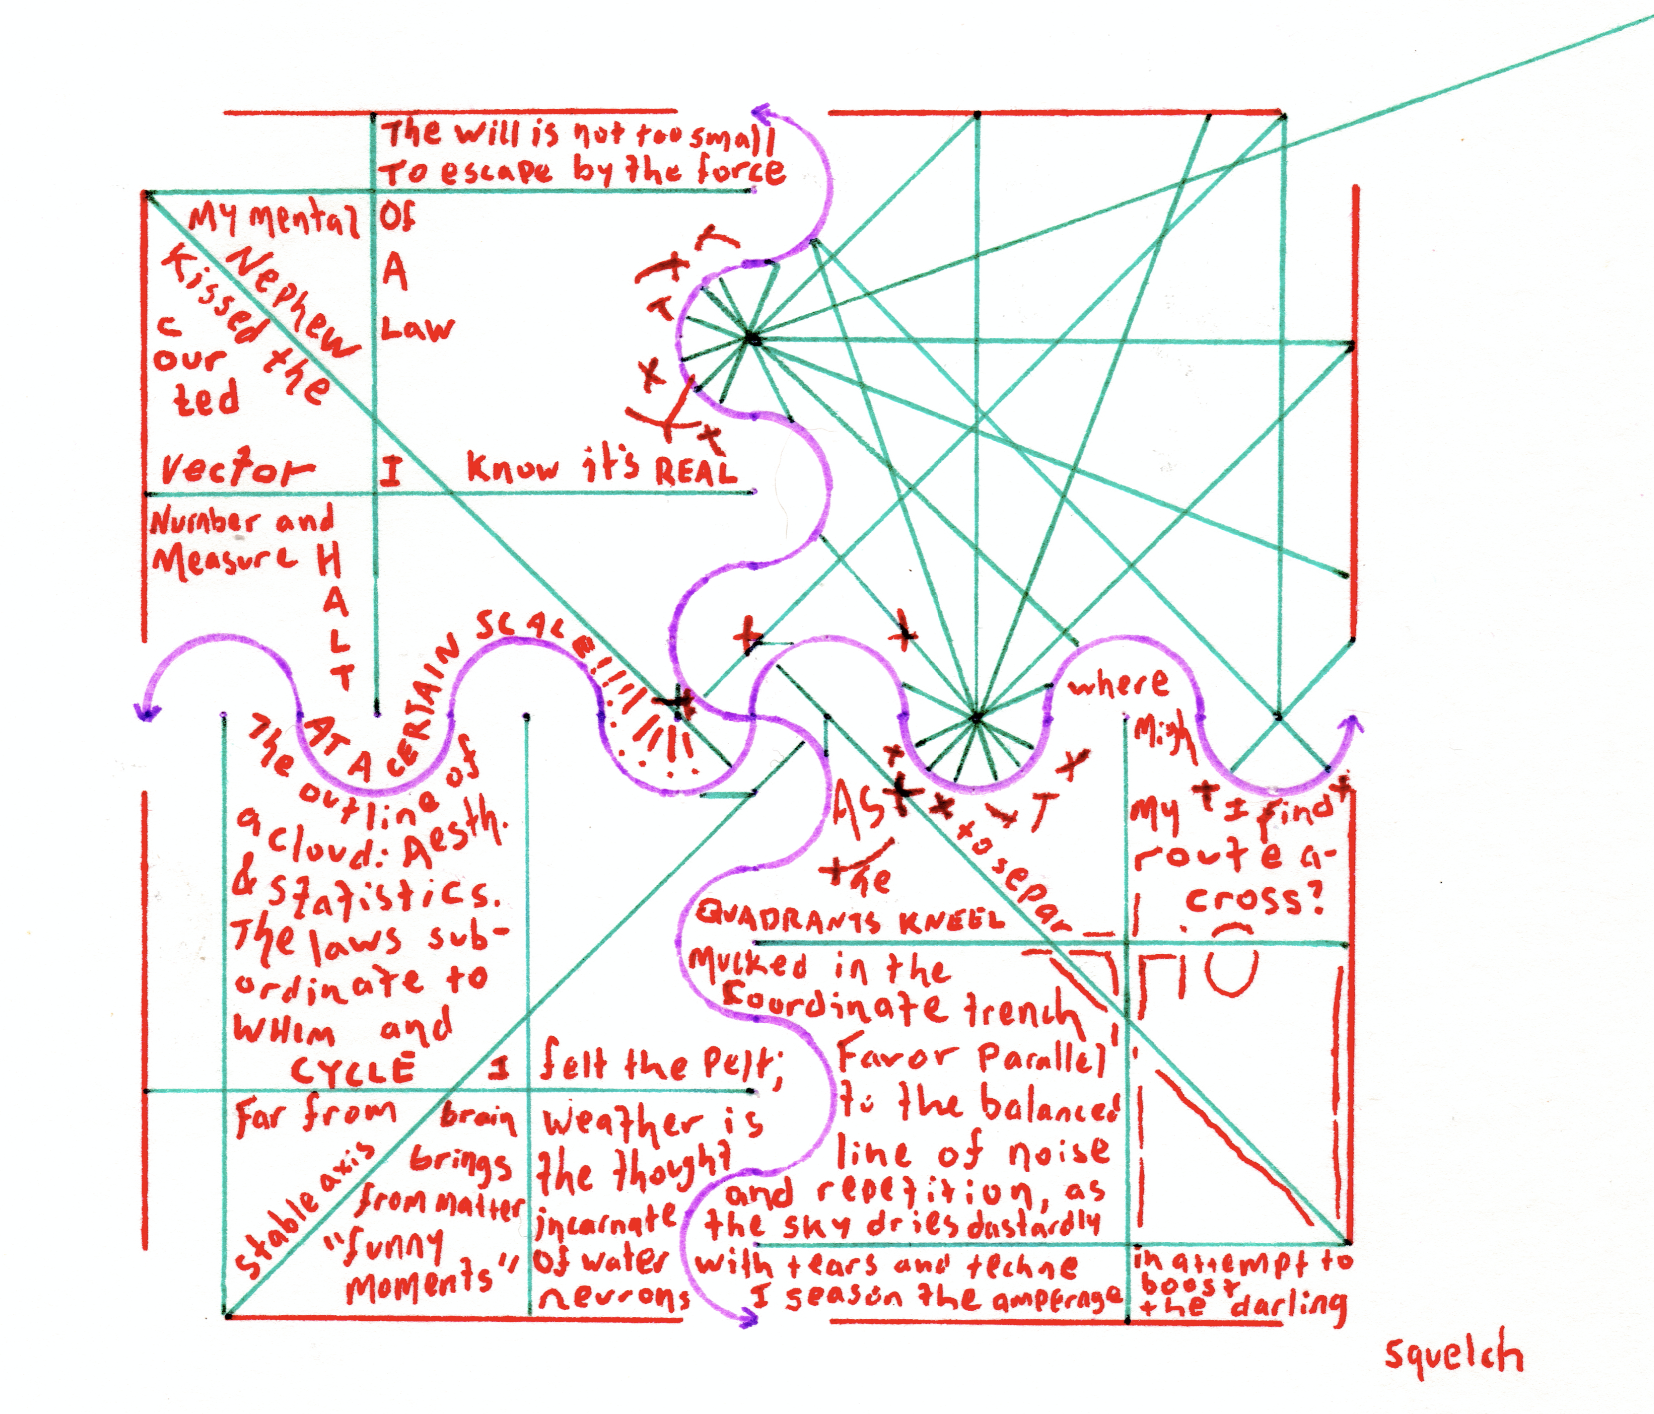 The will is not too small
To escape by the force
Of
A
Law
My mental
Nephew
Kissed the
C
our
ted
Vector
I know it's REAL
Number and
Measure
H
A
L
T
AT A CERTAIN SCALE!!!!!!!!!
The outline of
a cloud: Aesth.
& Statistics.
The laws sub-
ordinate to
WHIM and
CYCLE
I felt the Pelt;
Far from
stable axis
brain
brings
from Matter
"funny
Moments"
Weather is
the thought
incarnate
Of water
neurons
AS
the
QUADRANTS KNEEL
to separ
Mucked in the
Koordinate trench
Favor Parallel
to the balanced
line of noise
and repetition, as
the sky dries dastardly
with tears and techne
I season the amperage
in attempt to
boost
the darling
squelch
where
Migh
t I find
My
route a-
cross?